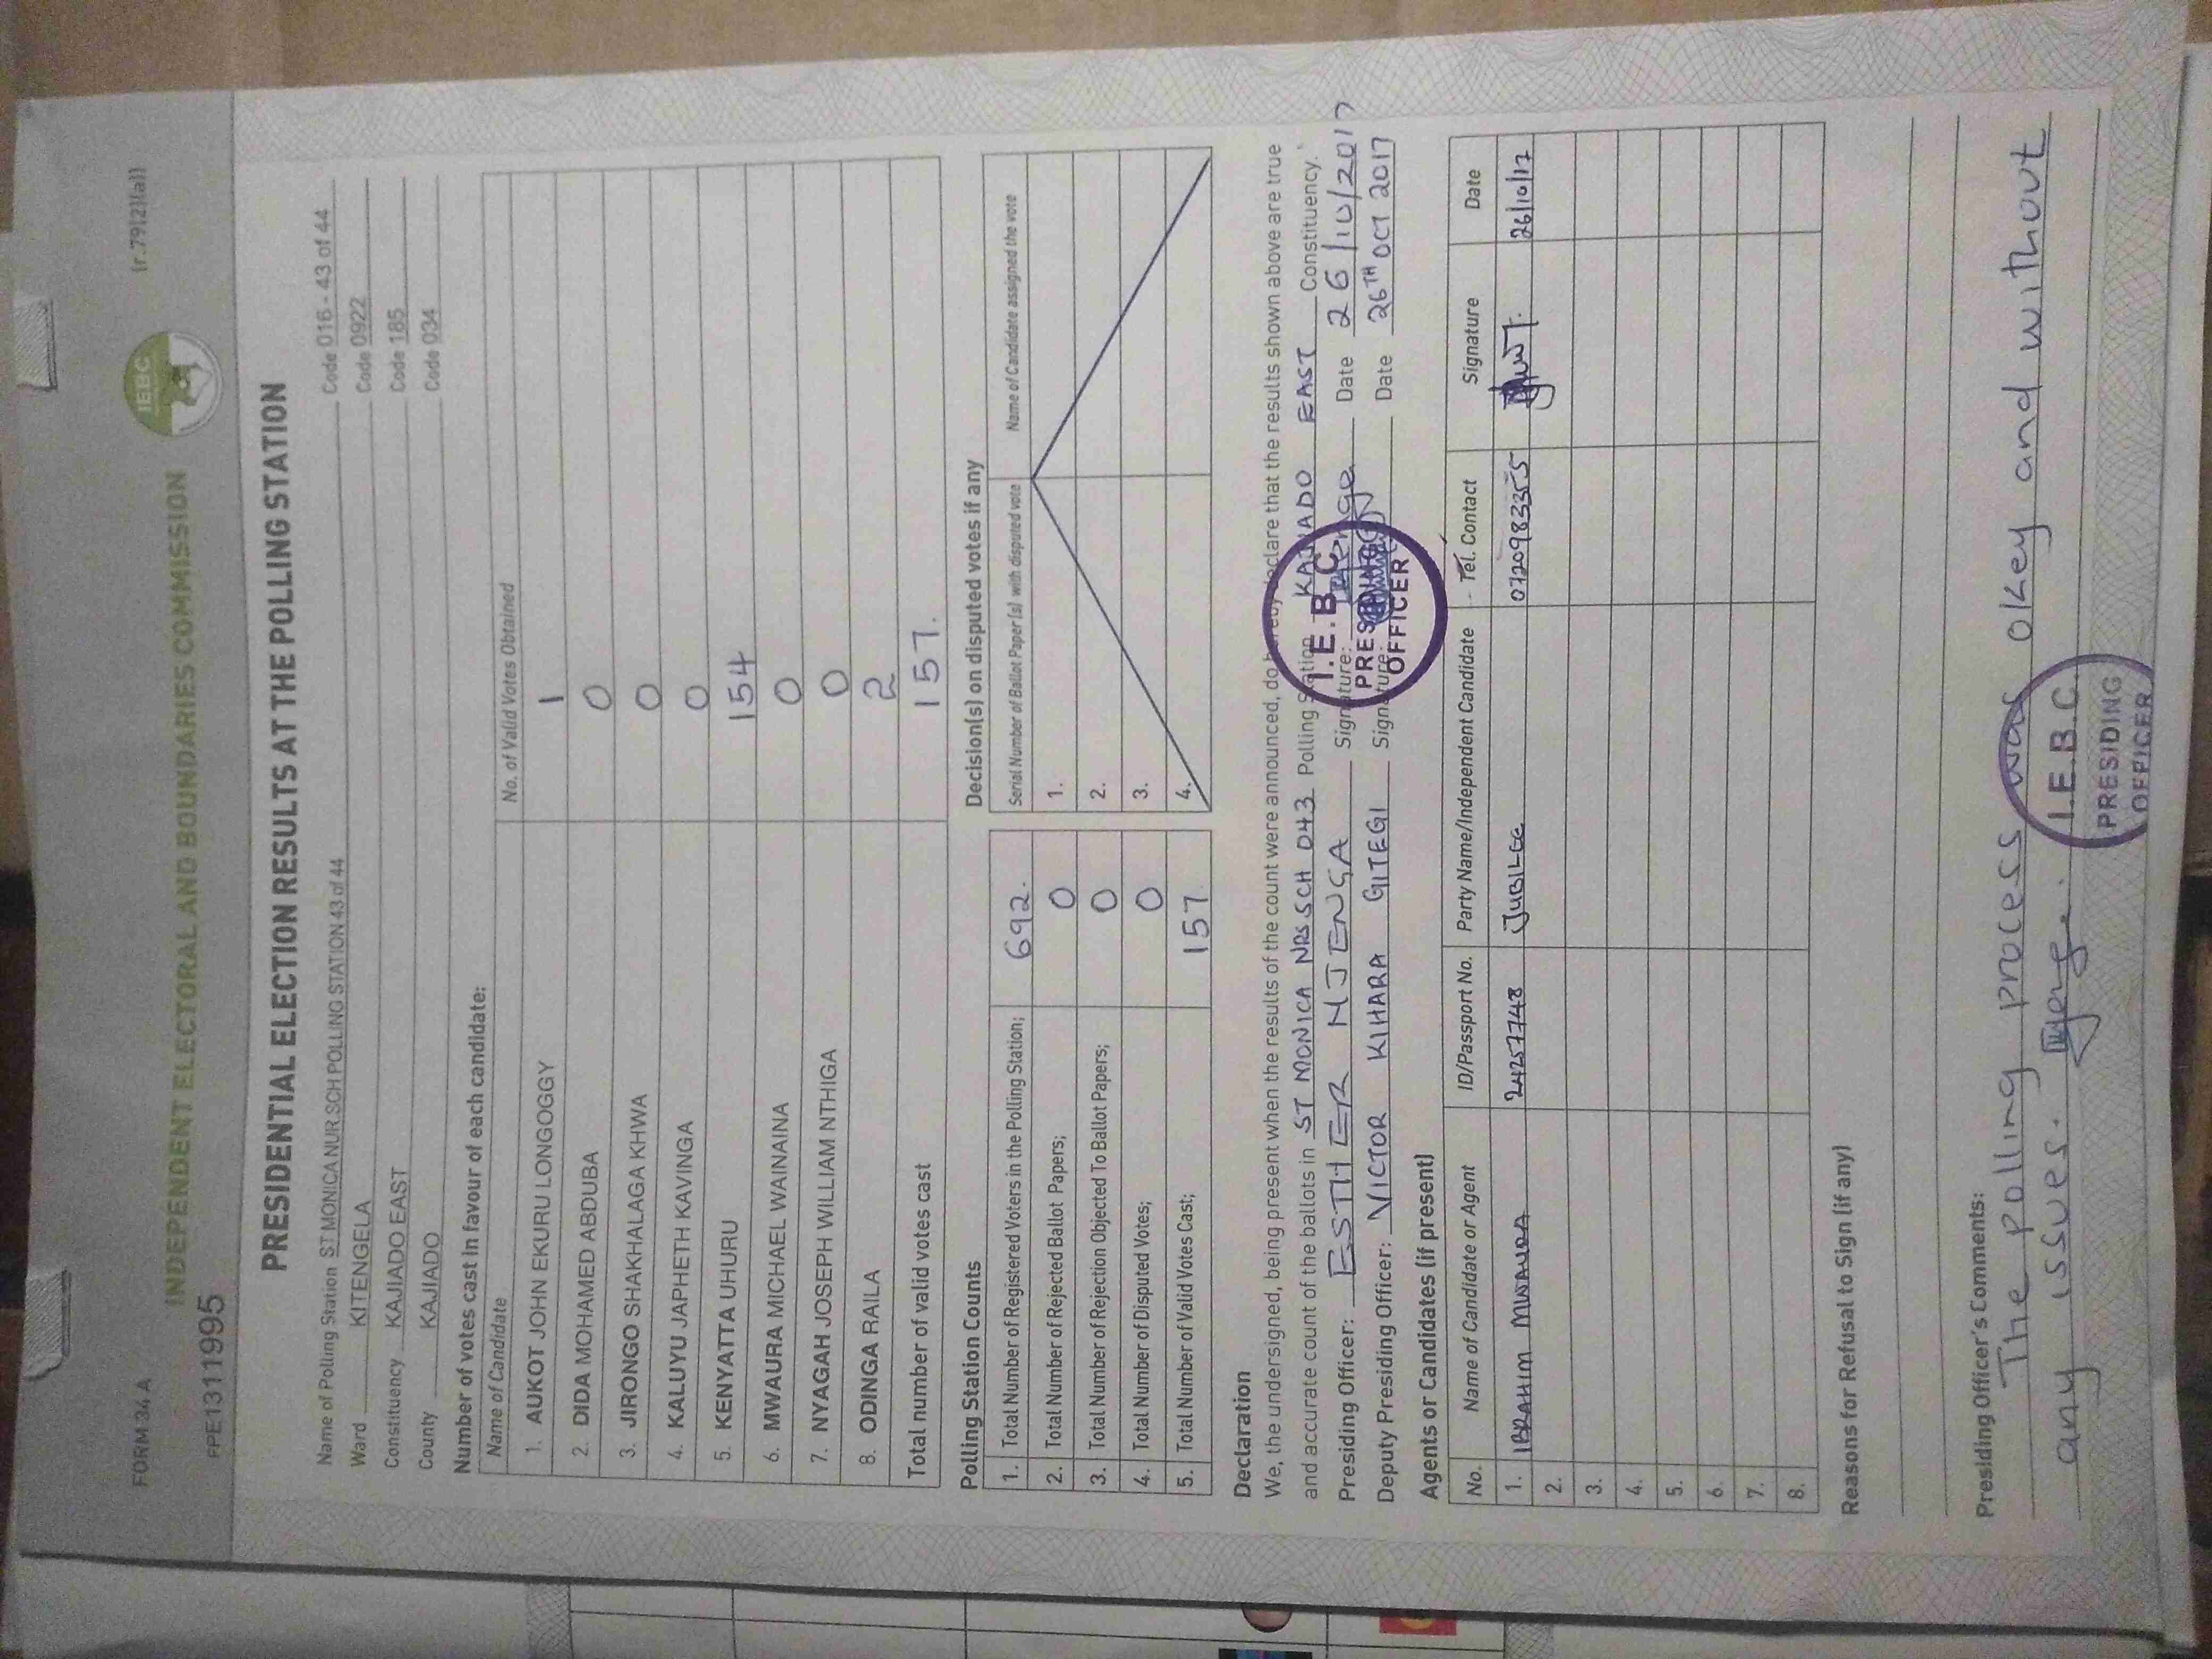 FORM 34 A
(r.79(2)(a))
INDEPENDENT ELECTORAL AND BOUNDARIES COMMISSION
IEBC
PPE1311995
PRESIDENTIAL ELECTION RESULTS AT THE POLLING STATION
Name of Polling Station ST MONICA NUR.SCH POLLING STATION 43 of 44 Code 016 - 43 of 44
Ward KITENGELA Code 0922
Constituency KAJIADO EAST Code 185
County KAJIADO Code 034
Number of votes cast in favour of each candidate:
Name of Candidate No. of Valid Votes Obtained
1. AUKOT JOHN EKURU LONGOGGY 1
2. DIDA MOHAMED ABDUBA 0
3. JIRONGO SHAKHALAGA KHWA 0
4. KALUYU JAPHETH KAVINGA 0
5. KENYATTA UHURU 154
6. MWAURA MICHAEL WAINAINA 0
7. NYAGAH JOSEPH WILLIAM NTHIGA 0
8. ODINGA RAILA 2
Total number of valid votes cast 157.
Polling Station Counts
1. Total Number of Registered Voters in the Polling Station; 692.
2. Total Number of Rejected Ballot Papers; 0
3. Total Number of Rejection Objected To Ballot Papers; 0
4. Total Number of Disputed Votes; 0
5. Total Number of Valid Votes Cast; 157
Decision(s) on disputed votes if any
Serial Number of Ballot Paper(s) with disputed vote Name of Candidate assigned the vote
1.
2.
3.
4.
Declaration
We, the undersigned, being present when the results of the count were announced, do hereby declare that the results shown above are true
and accurate count of the ballots in ST MONICA NRS SCH 043 Polling Station KAJIADO EAST Constituency.
Presiding Officer: ESTHER NJENGA Signature: Date 26/10/2017
Deputy Presiding Officer: VICTOR KIHARA GITEGI Signature: Date 26TH OCT 2017
I.E.B.C
PRESIDING
OFFICER
Agents or Candidates (if present)
No. Name of Candidate or Agent ID/Passport No. Party Name/Independent Candidate Tel. Contact Signature Date
1. IBRAHIM MWAURA 24257748 JUBILEE 0720983355 26/10/17
2.
3.
4.
5.
6.
7.
8.
Reasons for Refusal to Sign (if any)
Presiding Officer's Comments:
The polling process was okey and without
any issues.
I.E.B.C
PRESIDING
OFFICER